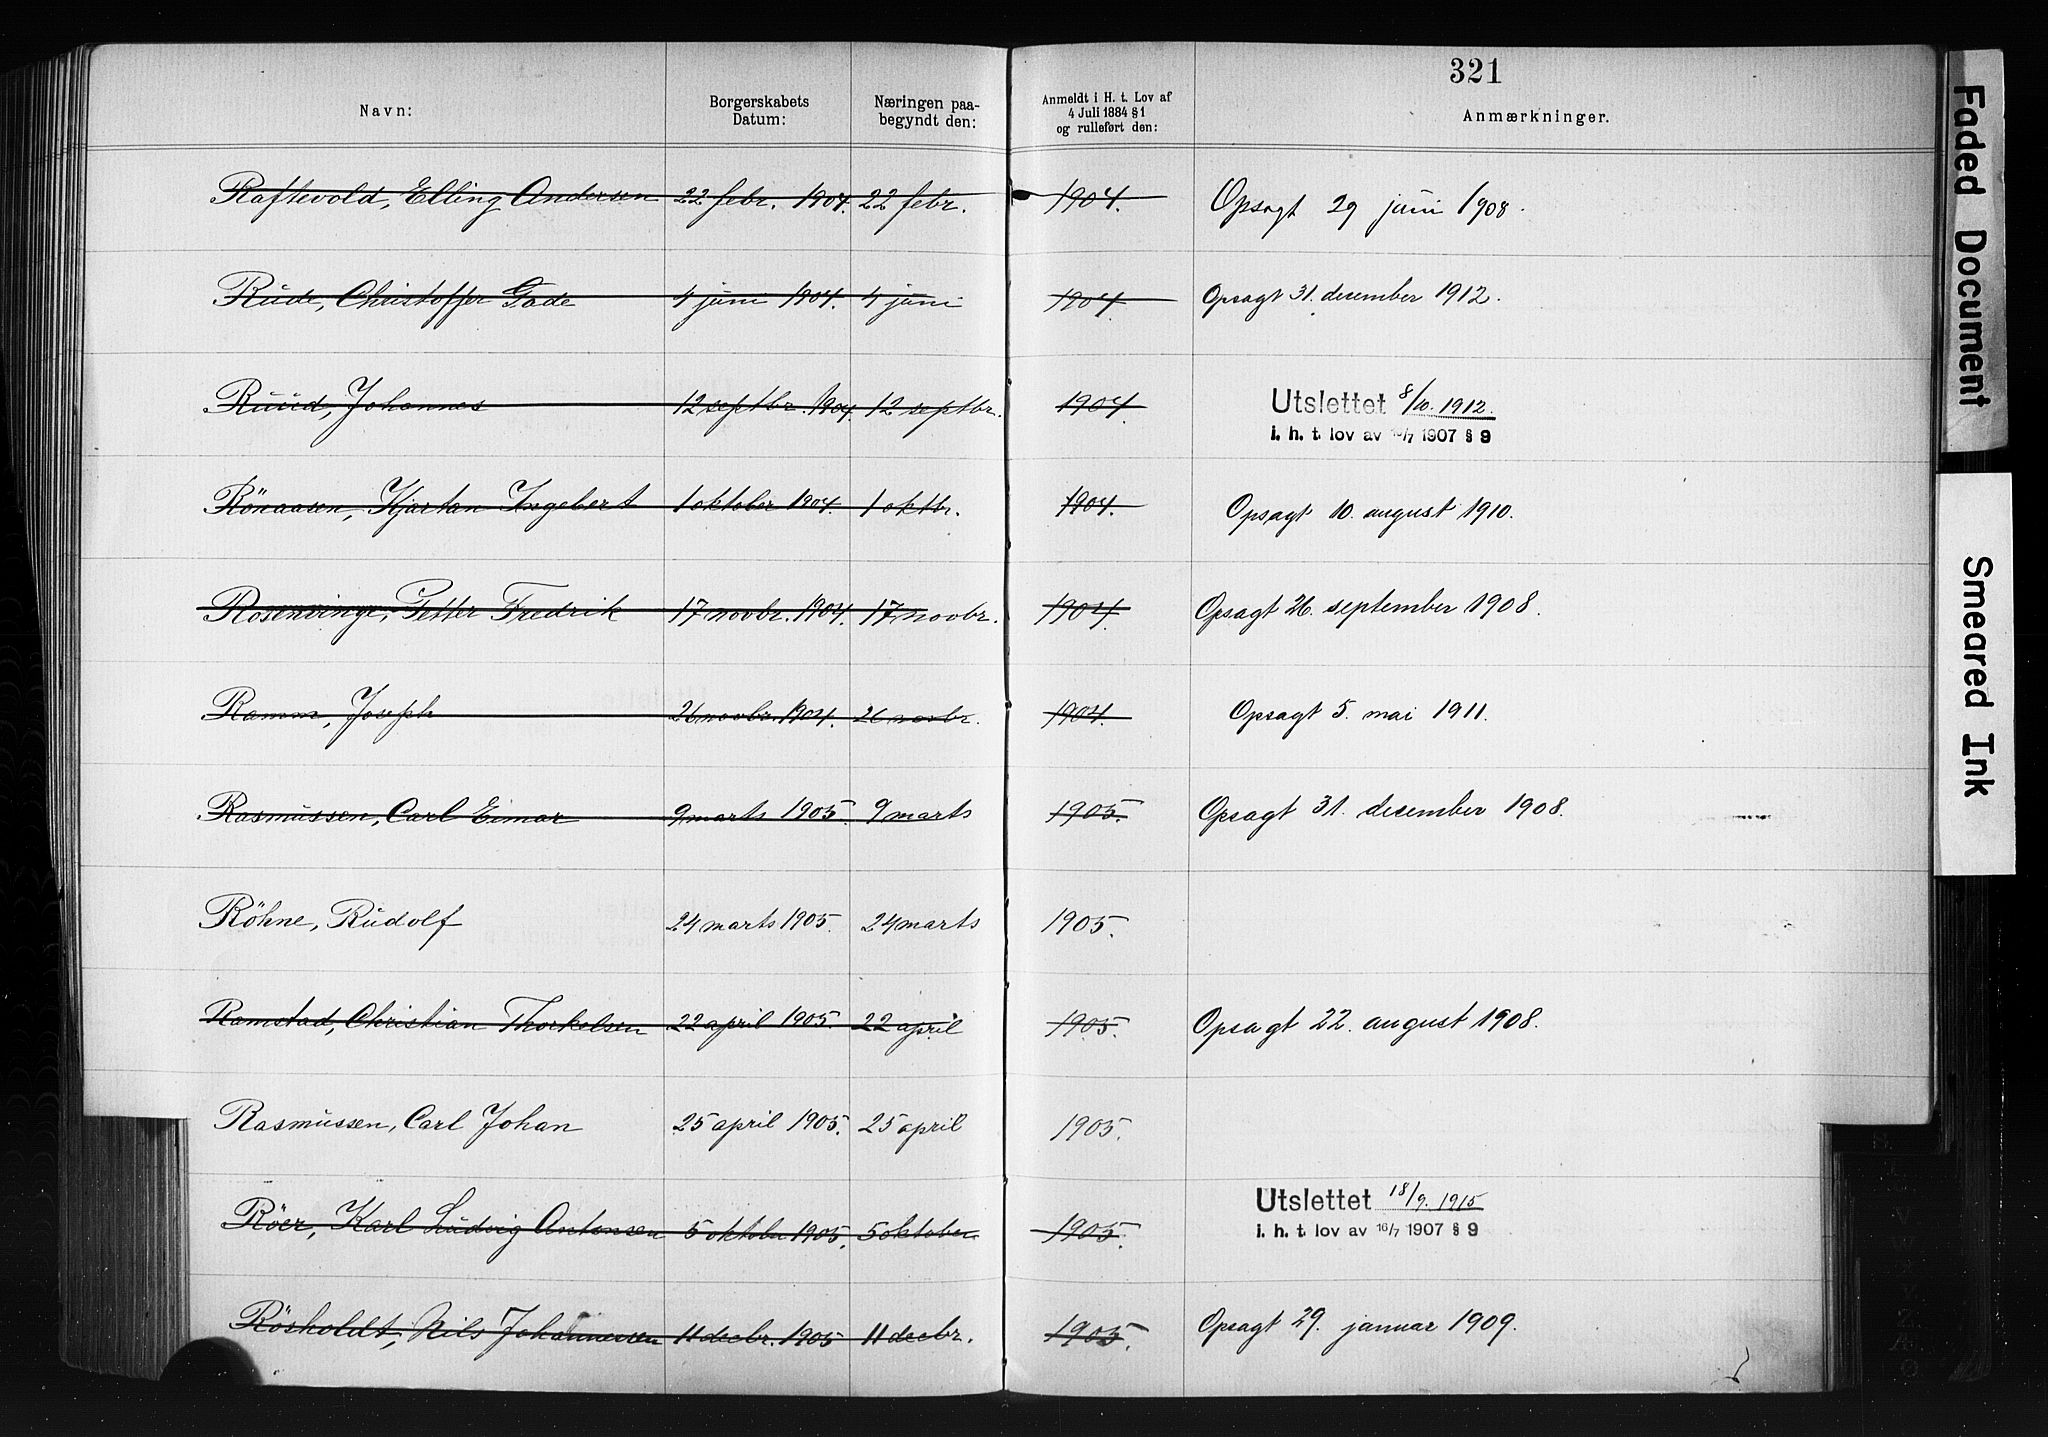 321
Navn: Borgerskabets Datum: Næringen paa-begyndt den: Anmeldt i H. t. Lov af 4 Juli 1884 § 1 og rulleført den: Anmærkninger.
Raftevold, Elling Andersen 22 febr. 1904. 22 febr. 1904. Opsagt 29 juni 1908.
Rude, Christoffer Gade 4 juni 1904. 4 juni 1904. Opsagt 31. desember 1912.
Ruud, Johannes 12 septbr. 1904. 12 septbr. 1904. Utslettet 8/10. 1912.
i. h. t. lov av 16/7 1907 § 9
Rönaasen, Kjartan Ingebert 1 oktober 1904. 1 oktbr. 1904. Opsagt 10. august 1910.
Rosenvinge, Petter Fredrik 17 novbr. 1904. 17 novbr. 1904. Opsagt 26. september 1908.
Ramm, Joseph 26 novbr. 1904. 26 novbr. 1904. Opsagt 5. mai 1911.
Rasmussen, Carl Eimar 9 marts 1905. 9 marts 1905. Opsagt 31. desember 1908.
Röhne, Rudolf 24 marts 1905. 24 marts 1905.
Ramstad, Christian Thorkelsen 22 april 1905. 22 april 1905. Opsagt 22. august 1908.
Rasmussen, Carl Johan 25 april 1905. 25 april 1905.
Röer, Karl Ludvig Antonsen 5 oktober 1905. 5 oktober 1905. Utslettet 18/9. 1915
i. h. t. lov av 16/7 1907 § 9
Rösholdt, Nils Johannessen 11 decbr. 1905 11 decbr. 1905. Opsagt 29. januar 1909.
Faded Document
Smeared Ink